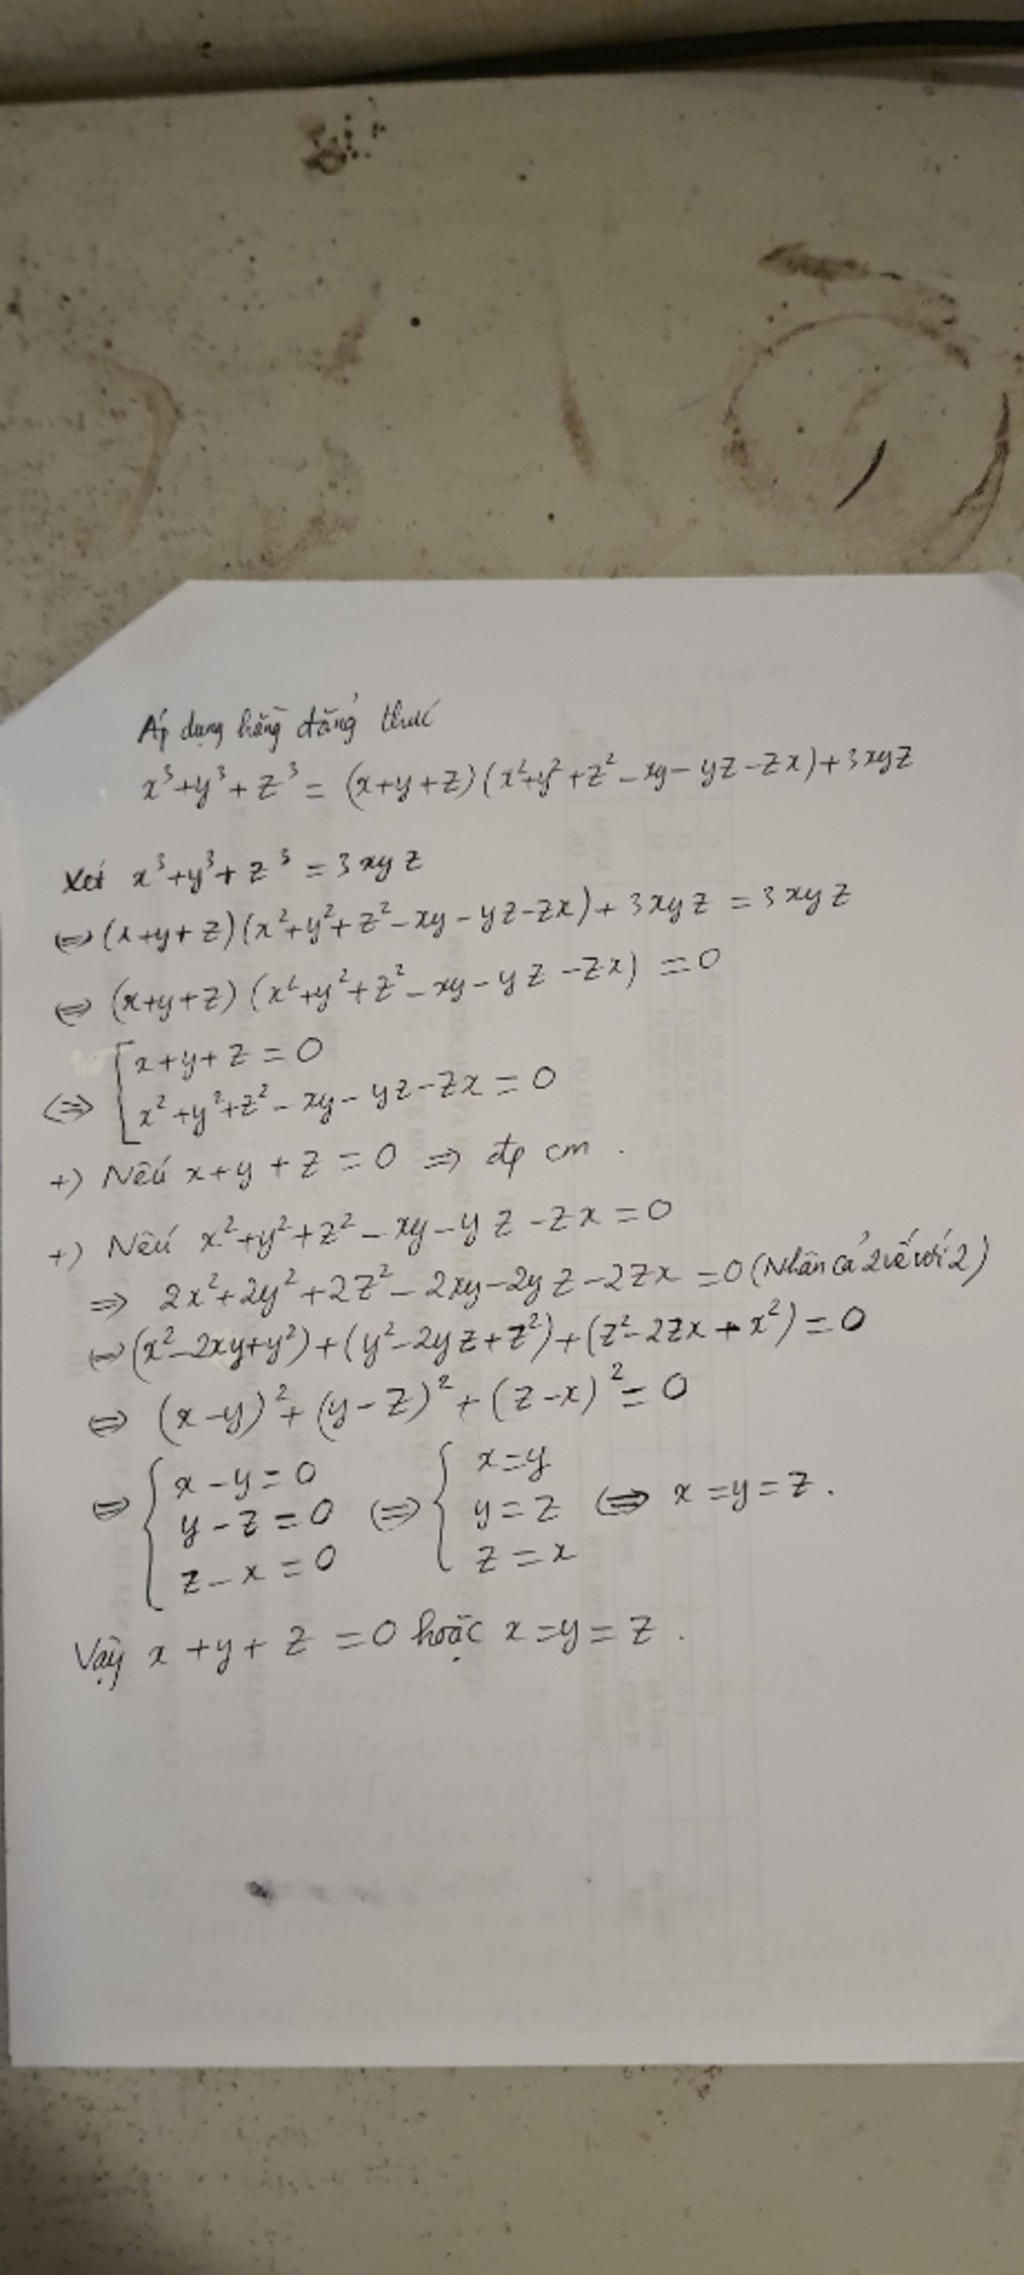 Áp dụng hằng đẳng thức
x³+y³+z³ = (x+y+z)(x²+y²+z²-xy-yz-zx)+3xyz
Xét x³+y³+z³ = 3xyz
⇔ (x+y+z)(x²+y²+z²-xy-yz-zx)+3xyz = 3xyz
⇔ (x+y+z)(x²+y²+z²-xy-yz-zx) = 0
⇔ [ x+y+z = 0
x²+y²+z²-xy-yz-zx = 0
+) Nếu x+y+z = 0 ⇒ đp cm .
+) Nếu x²+y²+z²-xy-yz-zx = 0
⇒ 2x²+2y²+2z²-2xy-2yz-2zx = 0 (Nhân cả 2 vế với 2)
⇔ (x²-2xy+y²)+(y²-2yz+z²)+(z²-2zx+x²) = 0
⇔ (x-y)²+(y-z)²+(z-x)² = 0
⇔ { x-y=0 ⇔ { x=y
y-z=0 y=z ⇔ x=y=z.
z-x=0 z=x
Vậy x+y+z = 0 hoặc x=y=z .